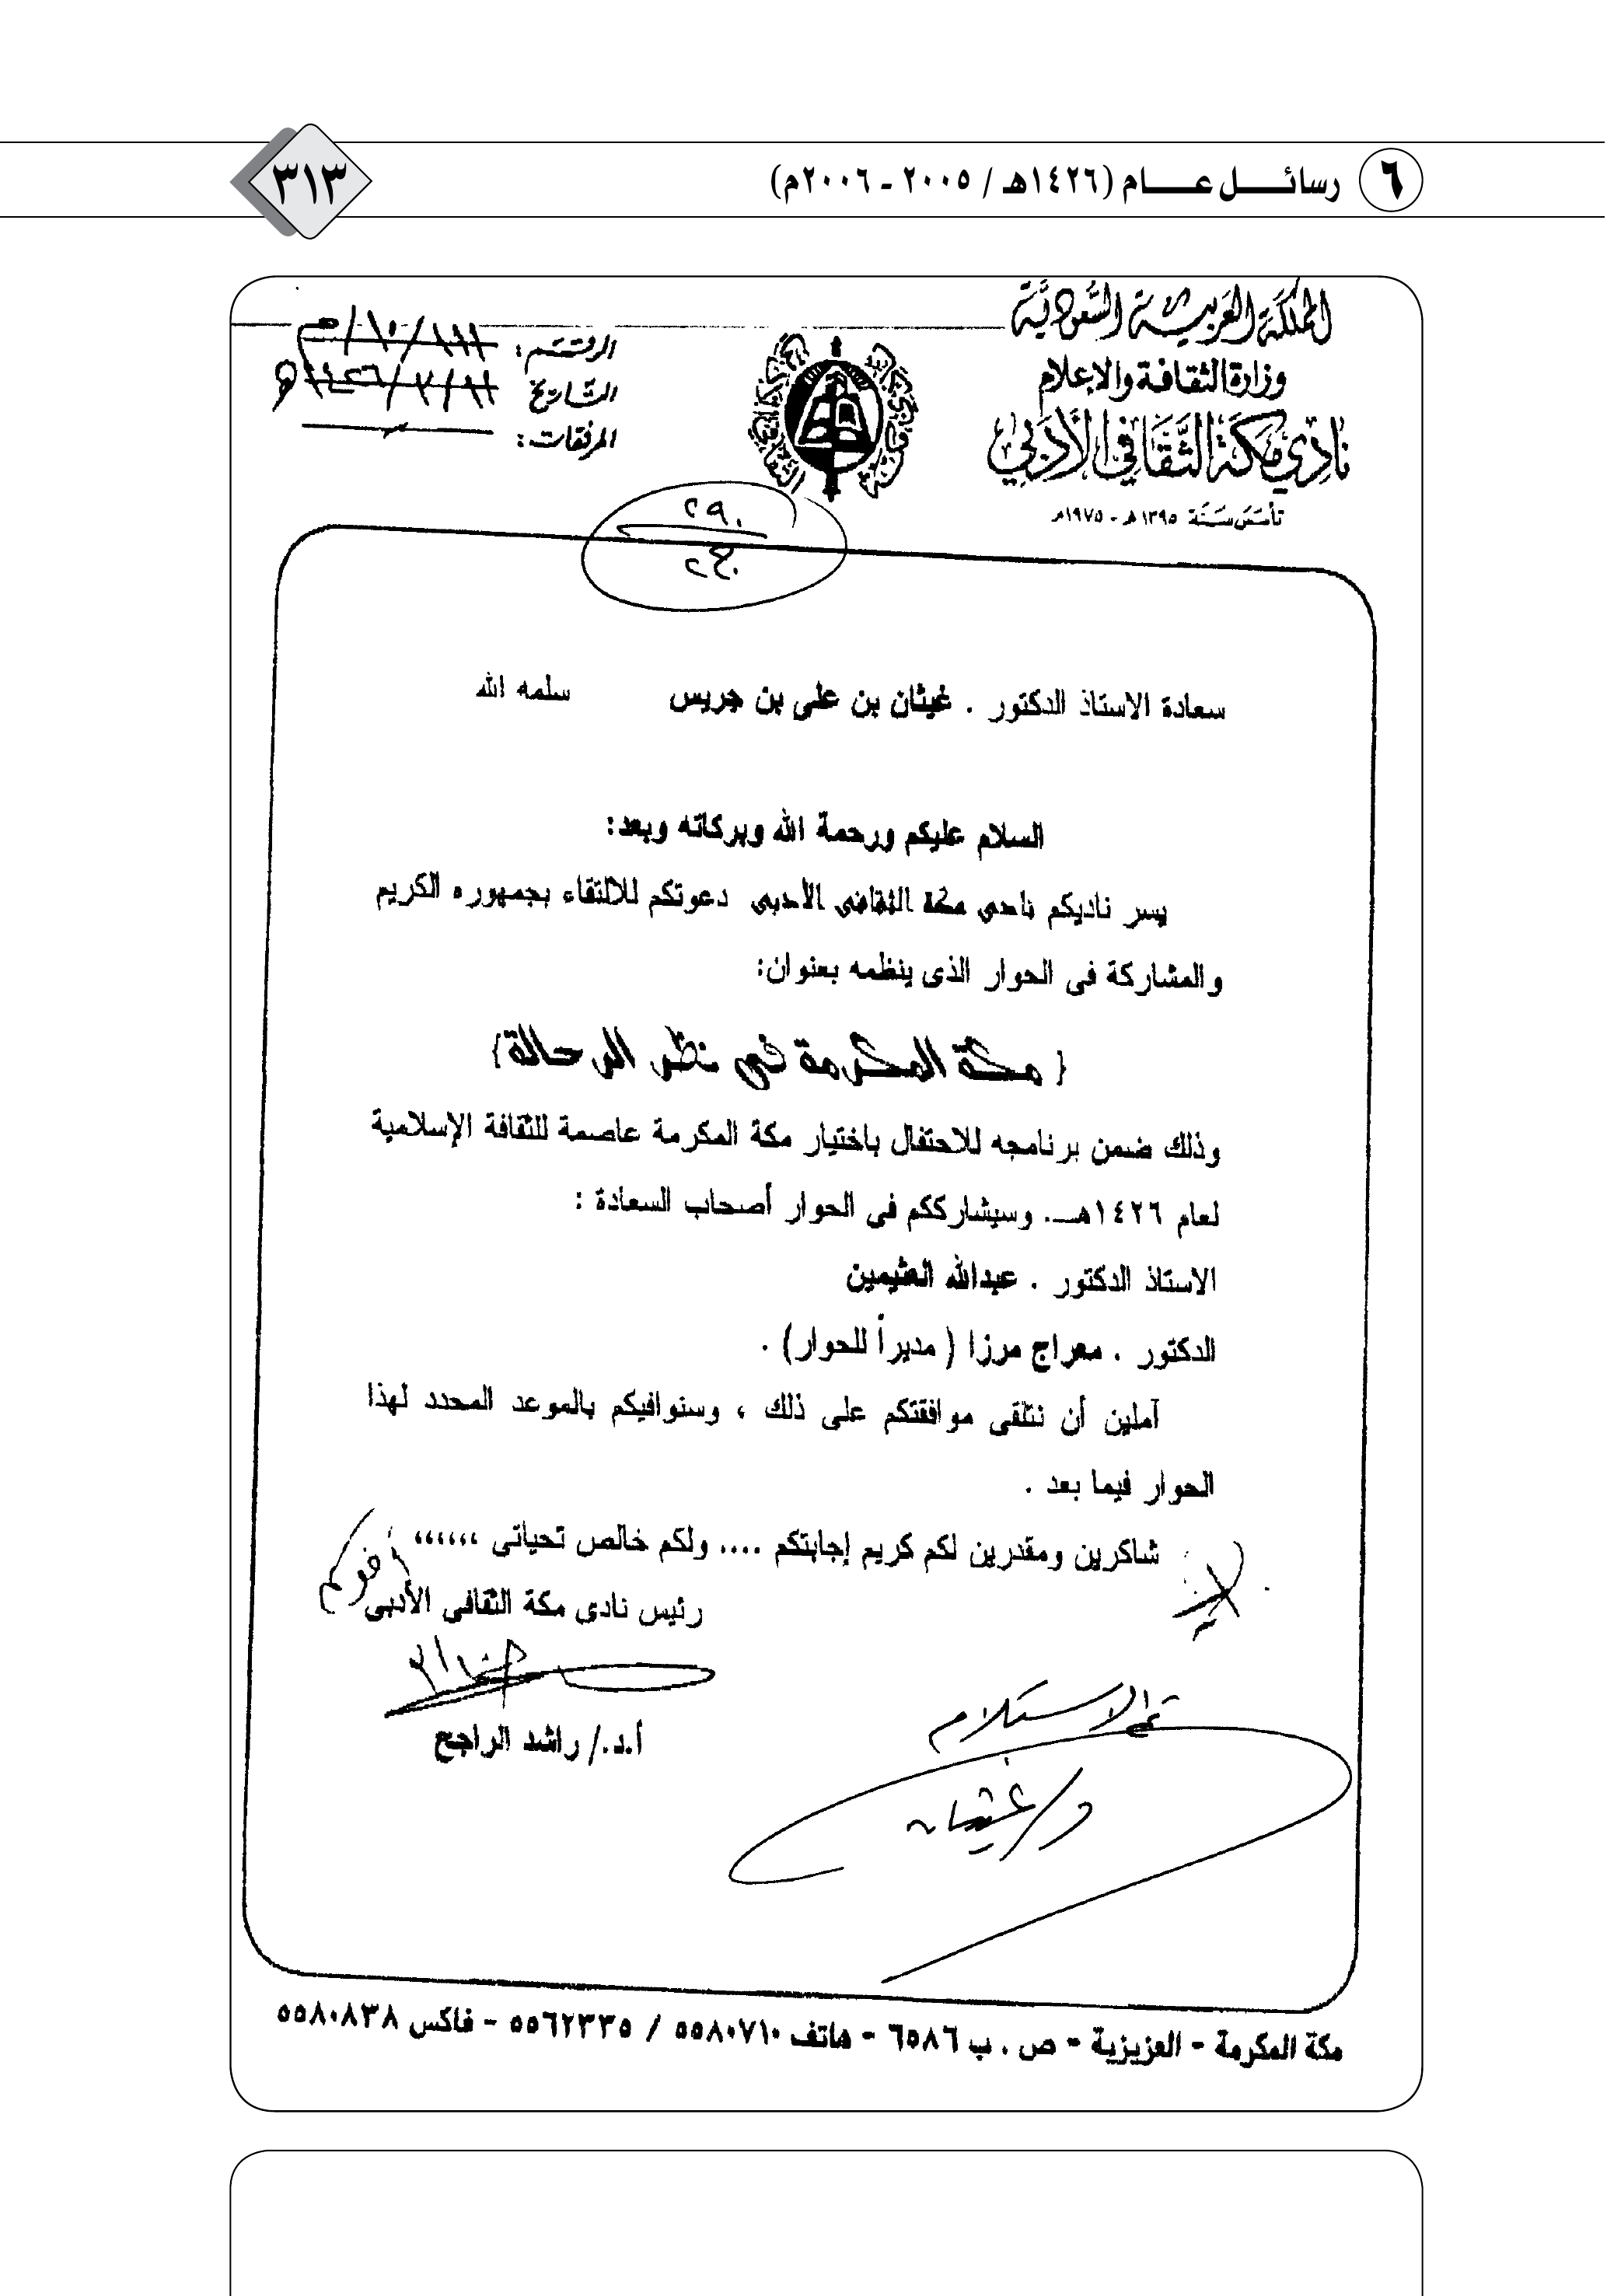 ٦
رسائــــل عــــام (١٤٢٦هـ / ٢٠٠٥ - ٢٠٠٦م)
٣١٣
المملكة العربية السعودية
وزارة الثقافة والإعلام
نادي مكة الثقافي الأدبي
تأسس سنة ١٣٩٥هـ - ١٩٧٥م
الرقم:
التاريخ
المرفقات:
سعادة الاستاذ الدكتور . غيثان بن على بن جريس سلمه الله
السلام عليكم ورحمة الله وبركاته وبعد:
يسر ناديكم نادي مكة الثقافي الأدبي دعوتكم للالتقاء بجمهوره الكريم
والمشاركة فى الحوار الذى ينظمه بعنوان:
{ مكة المكرمة في نظر الرحالة}
وذلك ضمن برنامجه للاحتفال باختيار مكة المكرمة عاصمة للثقافة الإسلامية
لعام ١٤٢٦هــ. وسيشارككم فى الحوار أصحاب السعادة :
الاستاذ الدكتور . عبدالله العثيمين
الدكتور . معراج مرزا ( مديراً للحوار) .
آملين أن نتلقى موافقتكم على ذلك ، وسنوافيكم بالموعد المحدد لهذا
الحوار فيما بعد .
شاكرين ومقدرين لكم كريم إجابتكم .... ولكم خالص تحياتى ،،،،،،
أخوكم
رئيس نادى مكة الثقافى الأدبى
أ.د./ راشد الراجح
تم الاستلام
د/غيثان
مكة المكرمة - العزيزية - ص . ب ٦٥٨٦ - هاتف ٥٥٨٠٧١٠ / ٥٥٦٢٣٣٥ - فاكس ٥٥٨٠٨٣٨